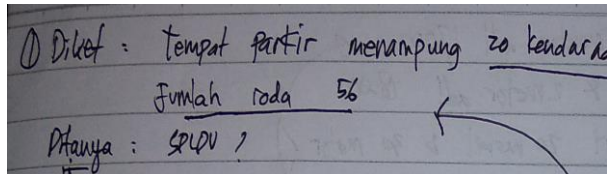 ① Diket : tempat parkir menampung 20 kendara
Jumlah roda 56
Ditanya : SPLDV ?